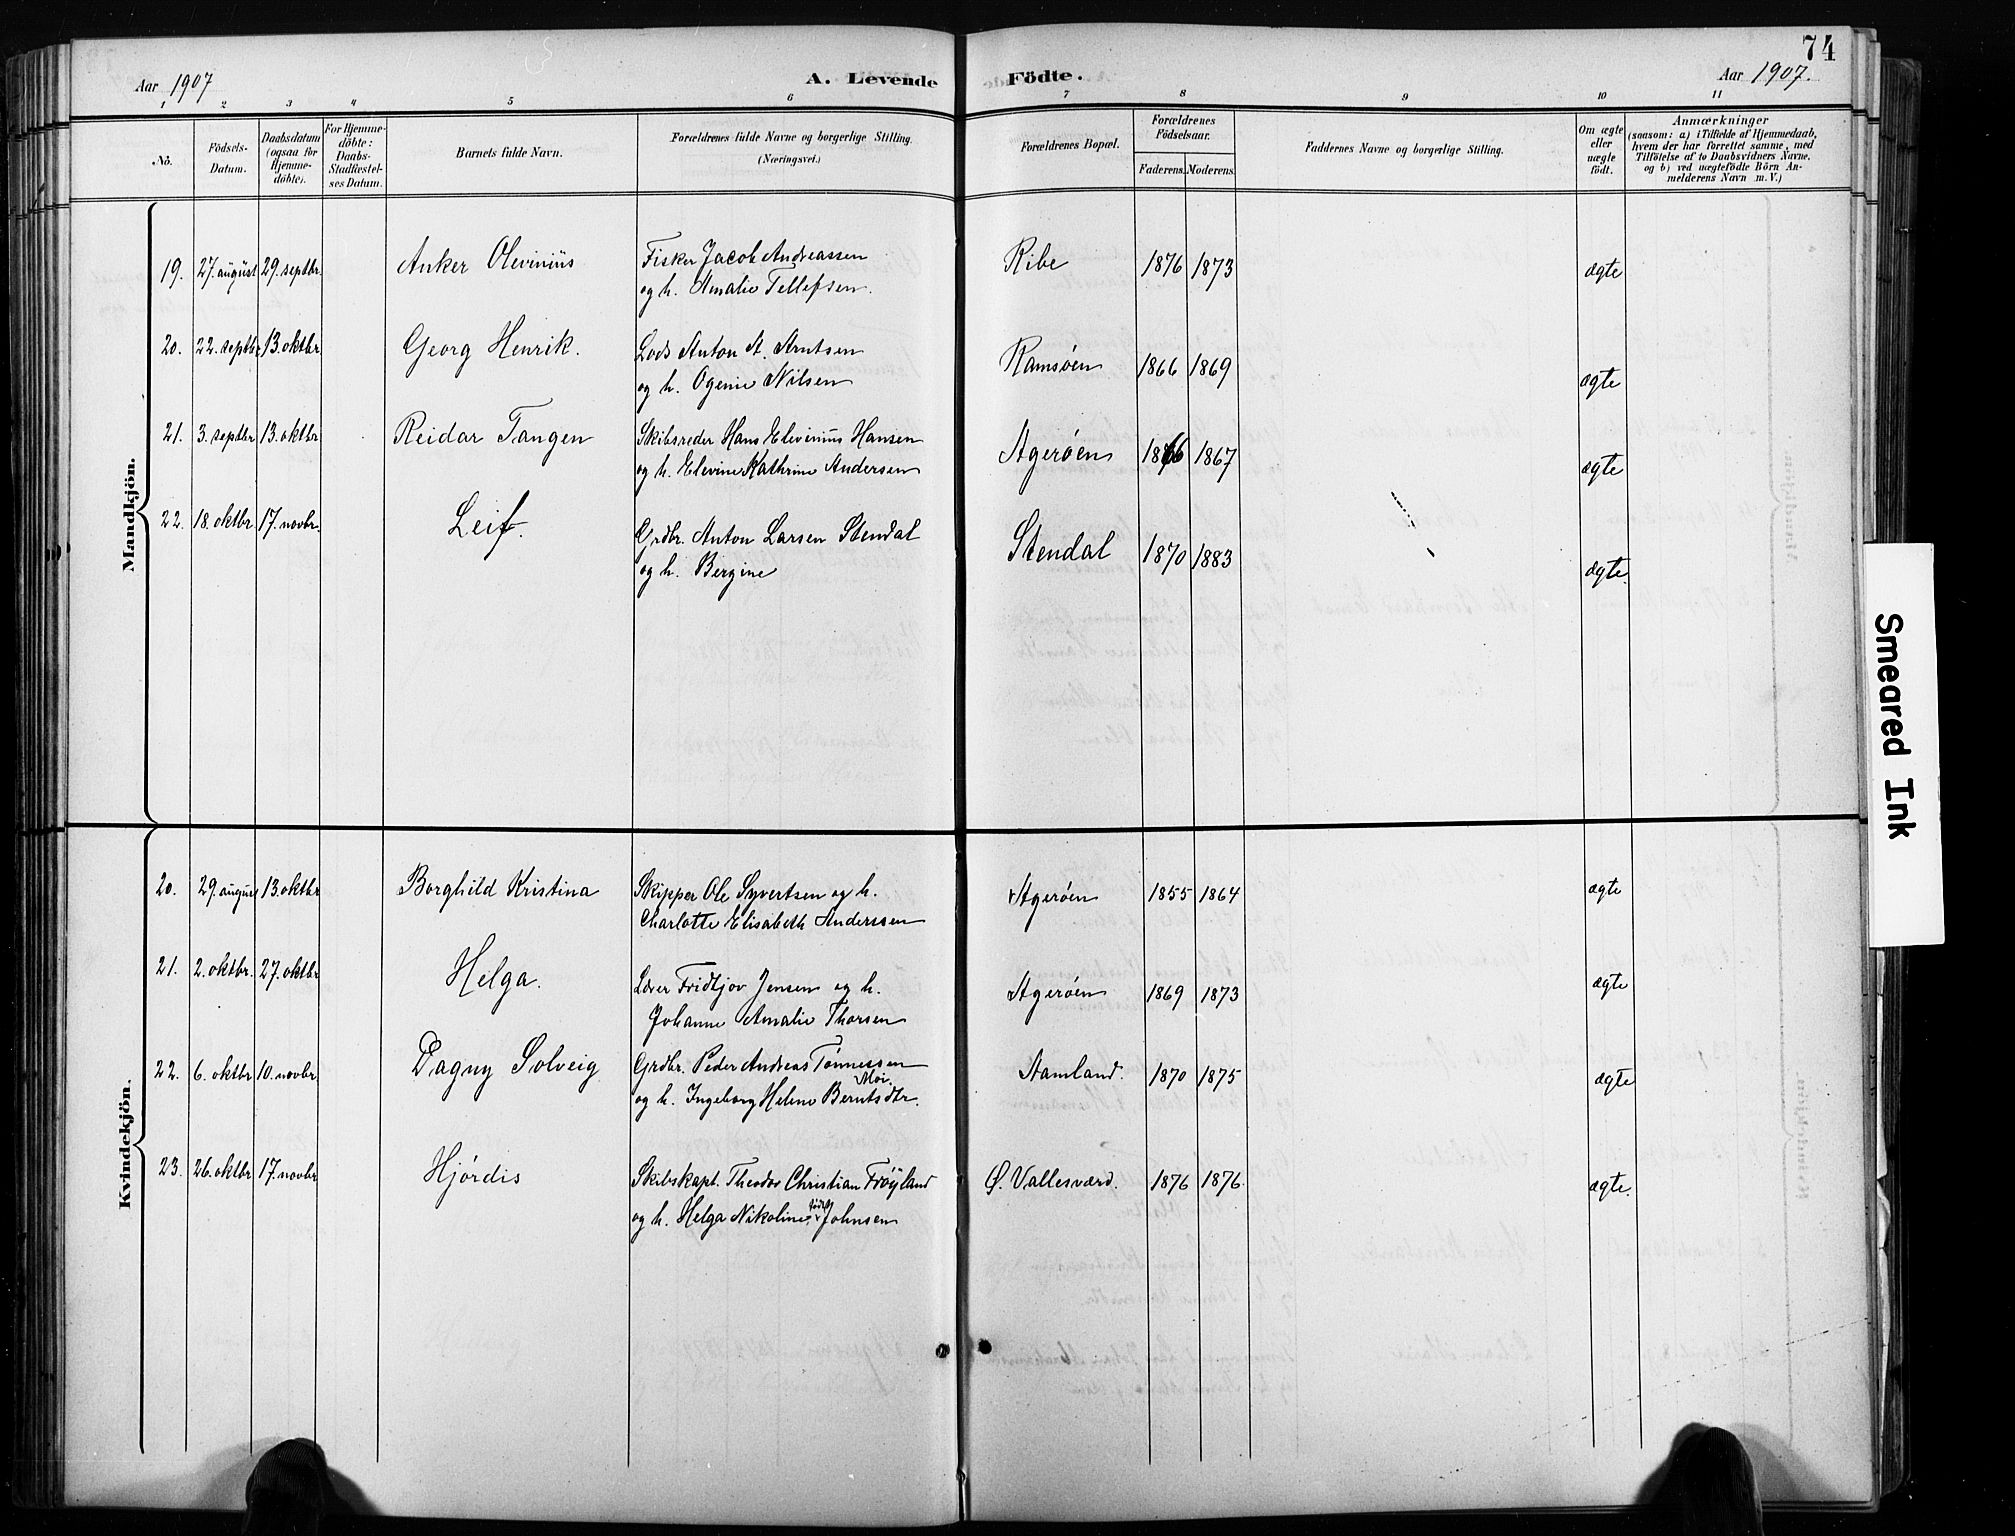 74
Aar 1907 A. Levende Födte. Aar 1907.
1 2 3 4 5 6 7 8 9 10 11
No.
Födsels-
Datum.
Daabsdatum
(ogsaa for
Hjemme-
döbte).
For Hjemme-
döbte:
Daabs-
Stadfæstel-
ses Datum.
Barnets fulde Navn.
Forældrenes fulde Navne og borgerlige Stilling.
(Næringsvei.)
Forældrenes Bopæl.
Forældrenes
Födselsaar.
Faderens. Moderens.
Faddernes Navne og borgerlige Stilling.
Om ægte
eller
uægte
födt.
Anmærkninger
(saasom: a) i Tilfælde af Hjemmedaab,
hvem der har forrettet samme, med
Tilföielse af to Daabsvidners Navne,
og b) ved uægtefödte Börn An-
melderens Navn m. V.)
Mandkjön.
19. 27. august 29. septbr. Anker Olevinius Fisker Jacob Andreassen Ribe 1876 1873 ægte
og h. Amalie Tellefsen.
20. 22. septbr 13. oktbr Georg Henrik. Lods Anton A. Arntsen Ramsøen 1866 1869 ægte
og h. Ogenie Nilsen
21. 3. septbr 13. oktbr Reidar Tangen Skibsreder Hans Elevinius Hansen Agerøen 1866 1867 ægte
og h. Elevine Kathrine Andersen
22. 18. oktbr. 17. novbr. Leif. Grdbr. Anton Larsen Stendal Stendal 1870 1883 ægte.
og h. Bergine
Kvindekjön.
20. 29. august 13. oktbr Borghild Kristina Skipper Ole Syvertsen og h. Agerøen 1855 1864 ægte
Charlotte Elisabeth Anderssen
21. 2. oktbr. 27. oktbr Helga. Lærer Fridtjov Jensen og h. Agerøen 1869 1873 ægte
Johanne Amalie Thorsen
22. 6. oktbr 10. novbr. Dagny Solveig Grdbr. Peder Andreas Tønnessen Stamland. 1870 1875 ægte
Moi.
og h. Ingeborg Helene Berntsdtr.
23. 26. oktbr 17. novbr Hjørdis Skibskapt. Theodor Christian Frøyland Ø. Vallesværd. 1876 1876. ægte.
født
og h. Helga Nikoline Johnsen
Smeared Ink